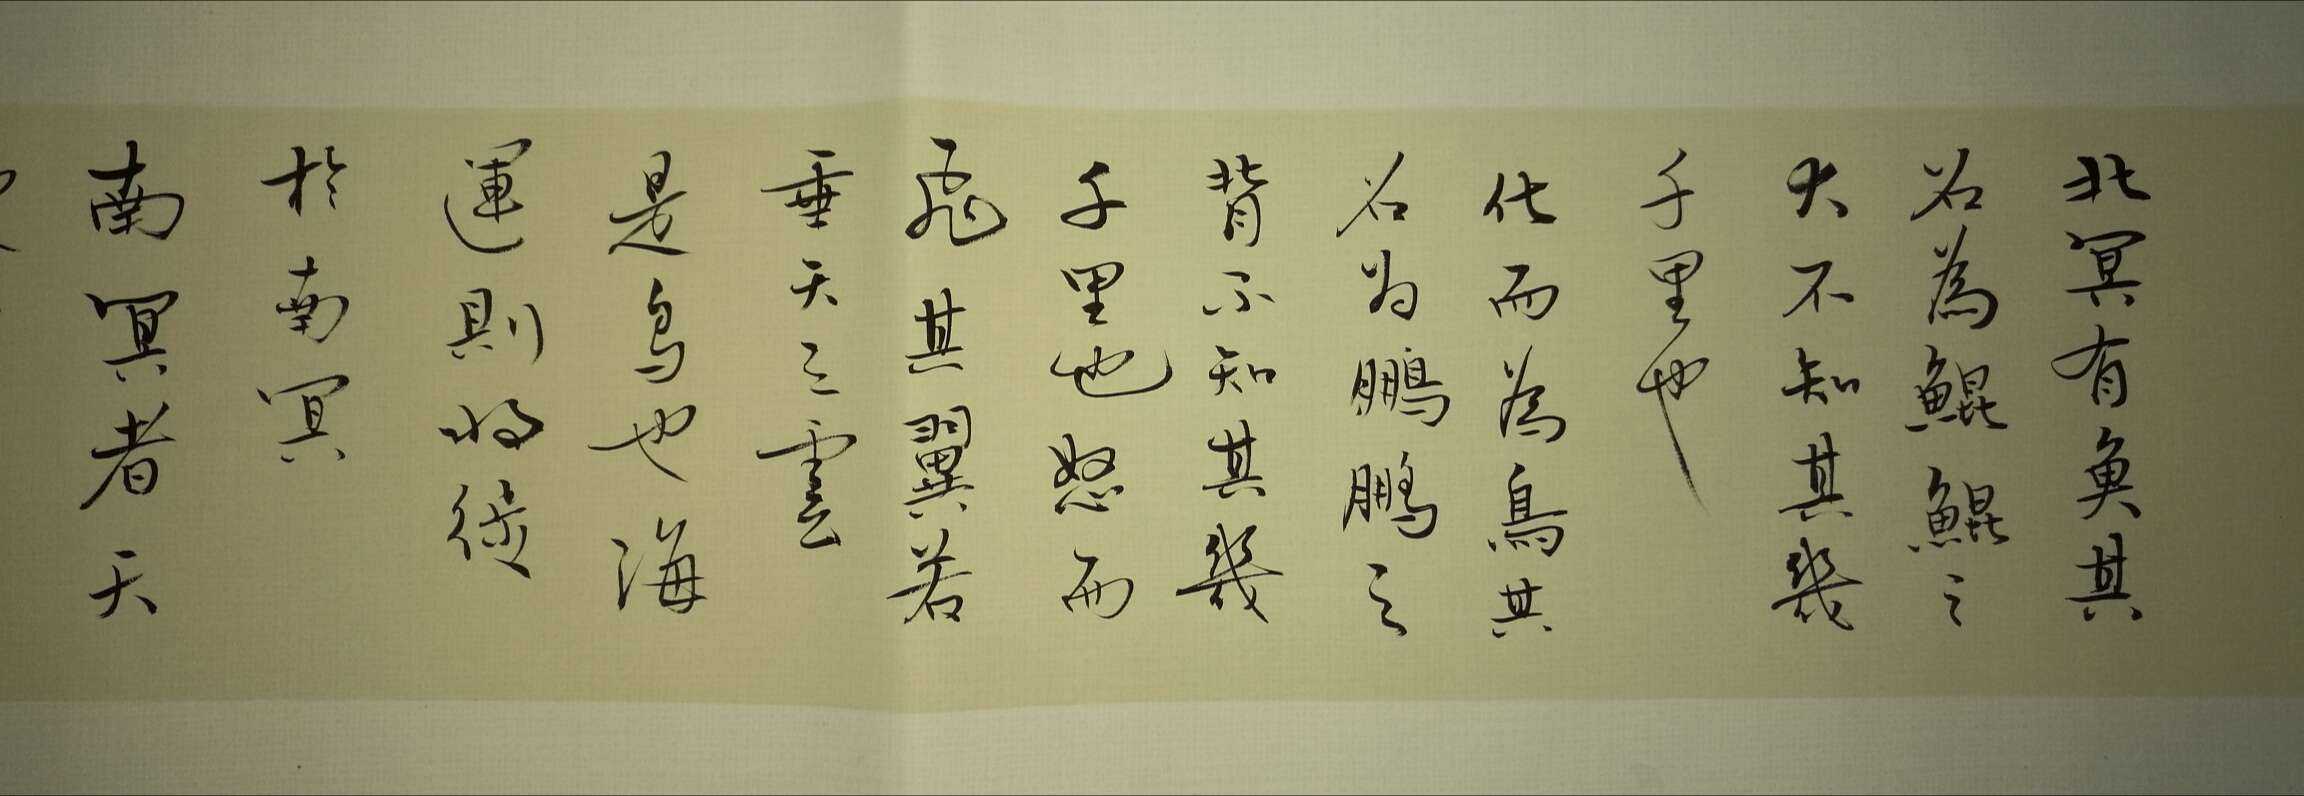 北冥有魚其
名為鯤鯤之
大不知其幾
千里也
化而為鳥其
名为鵬鵬之
背不知其幾
千里也怒而
飛其翼若
垂天之雲
是鳥也海
運則将徙
於南冥
南冥者天